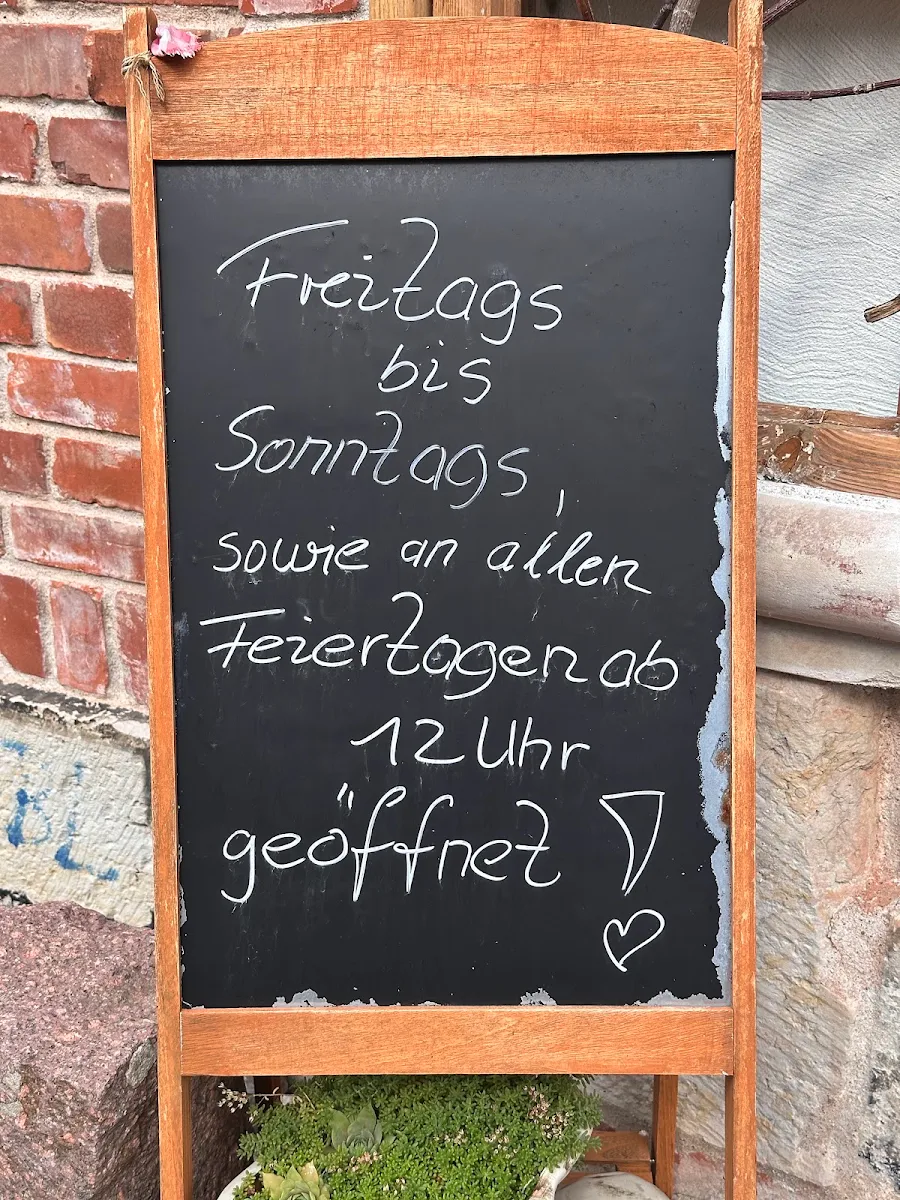 Freitags
bis
Sonntags,
sowie an allen
Feiertagen ab
12 Uhr
geöffnet!